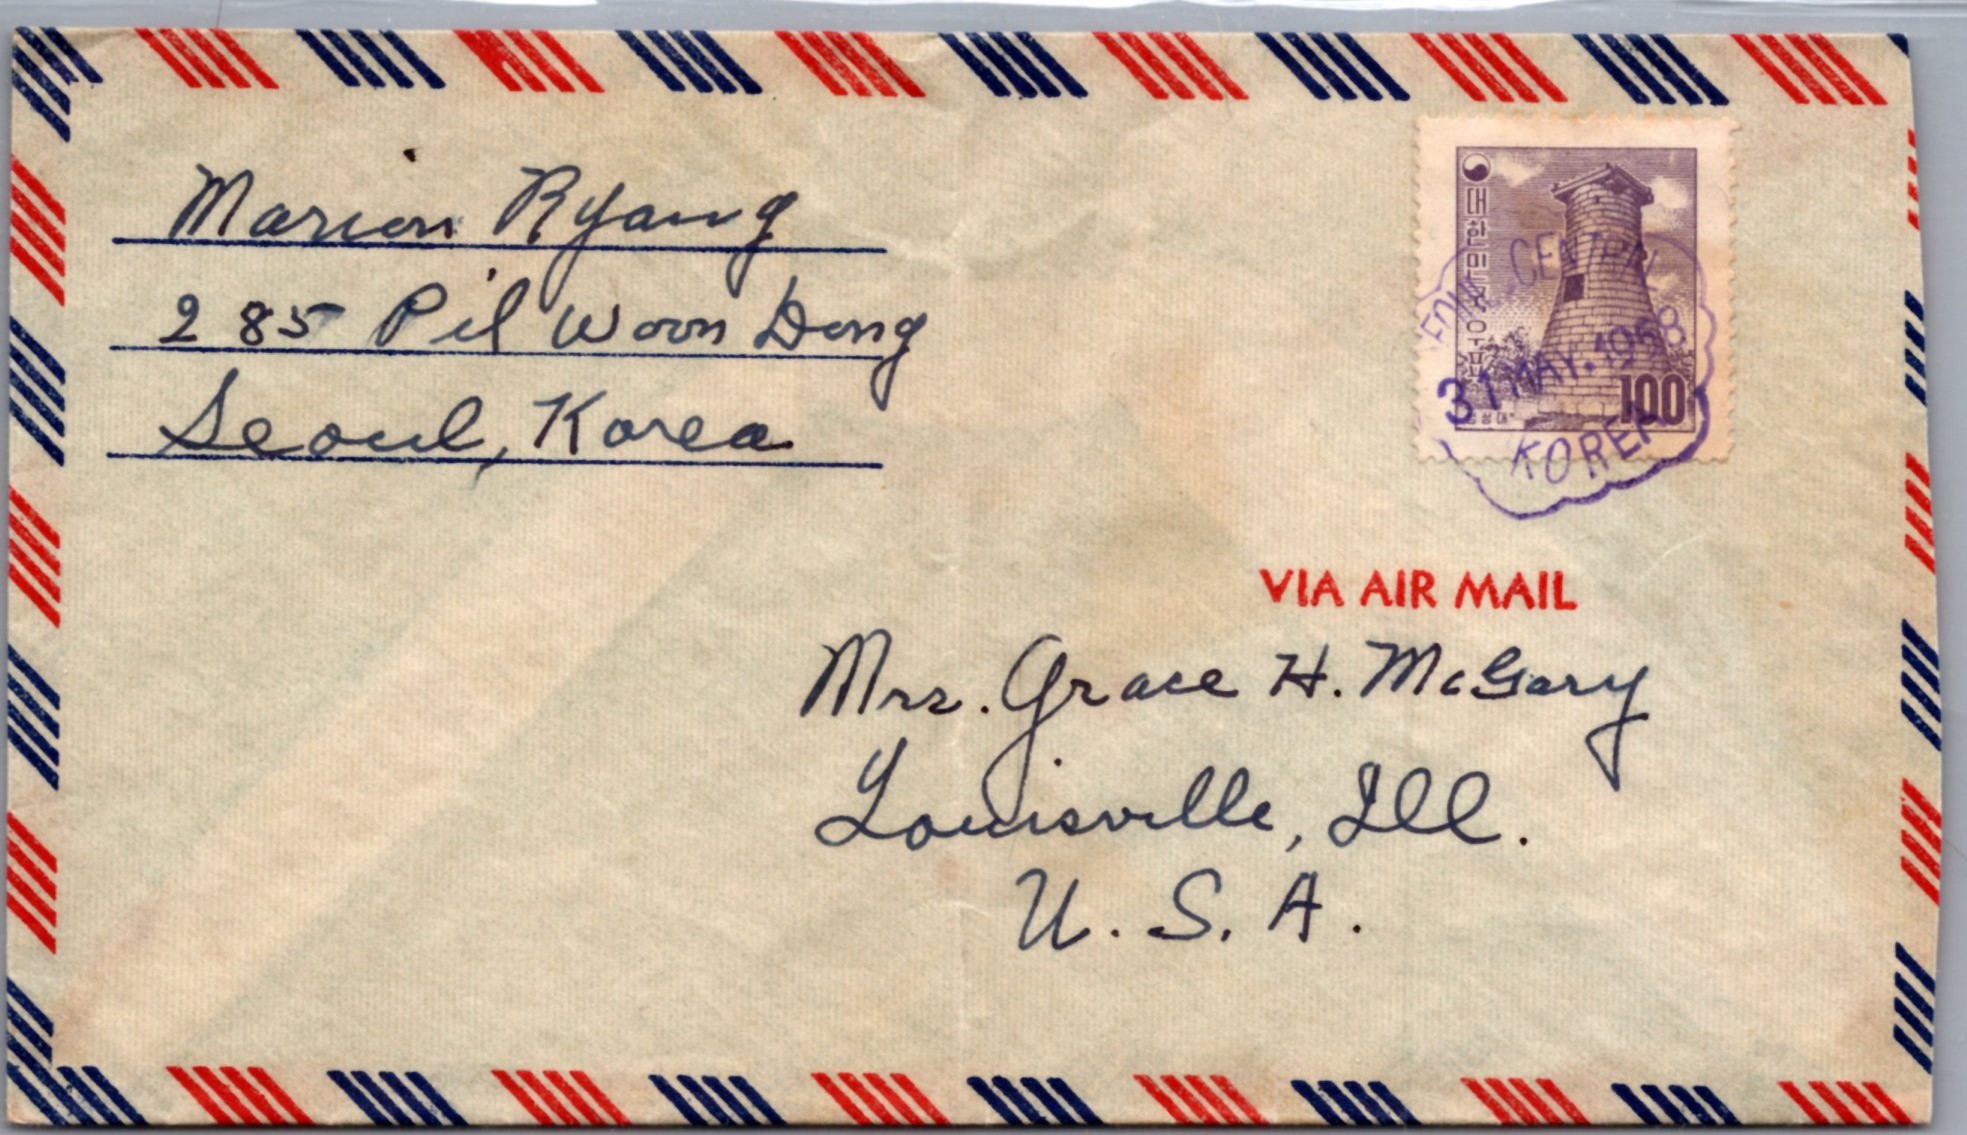 Marion Ryang
285 Pil Woon Dong
Seoul, Korea
대한민국우표
100
첨성대
CENTRAL
31 MAY. 1958
KOREA
VIA AIR MAIL
Mrs. Grace H. McGary
Louisville, Ill.
U. S. A.